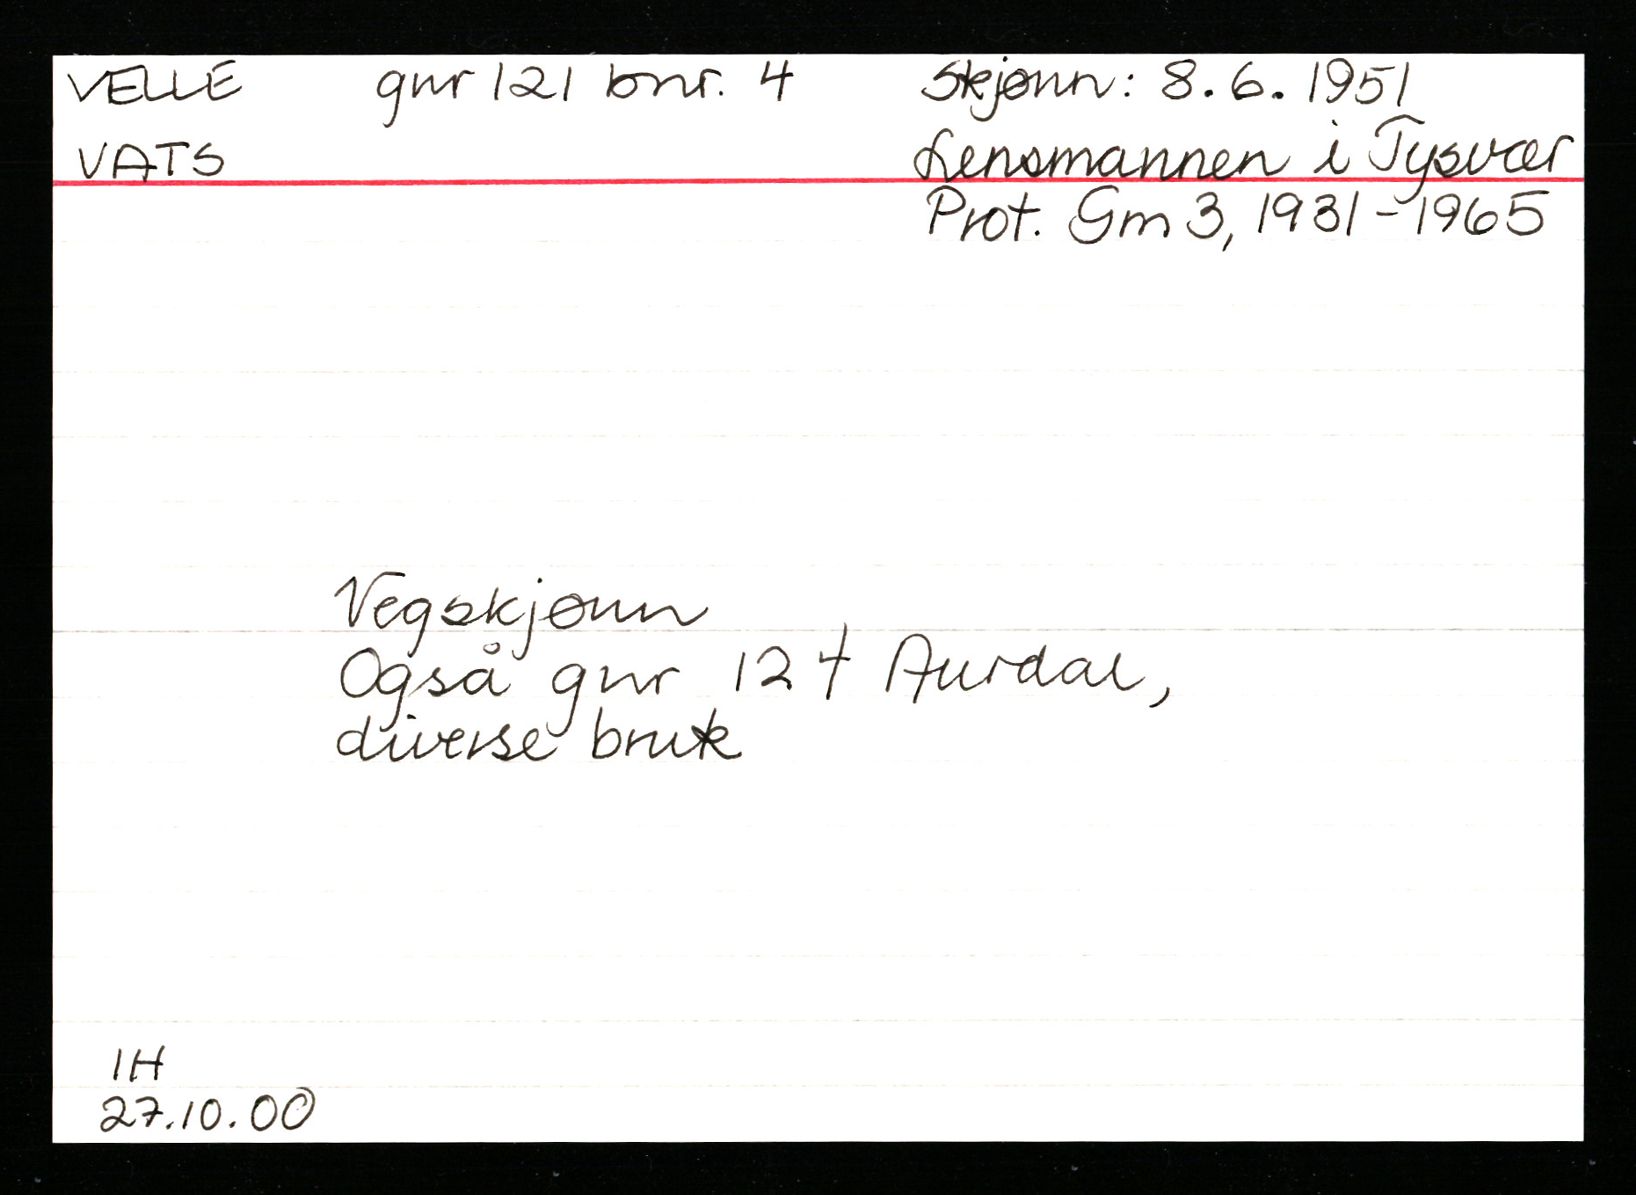 VELLE gnr 121 bnr. 4 Skjønn: 8.6.1951
VATS Lensmannen i Tysvær
Prot. Gm 3, 1931-1965
Vegskjønn
Også gnr 124 Aurdal,
diverse bruk
IH
27.10.00